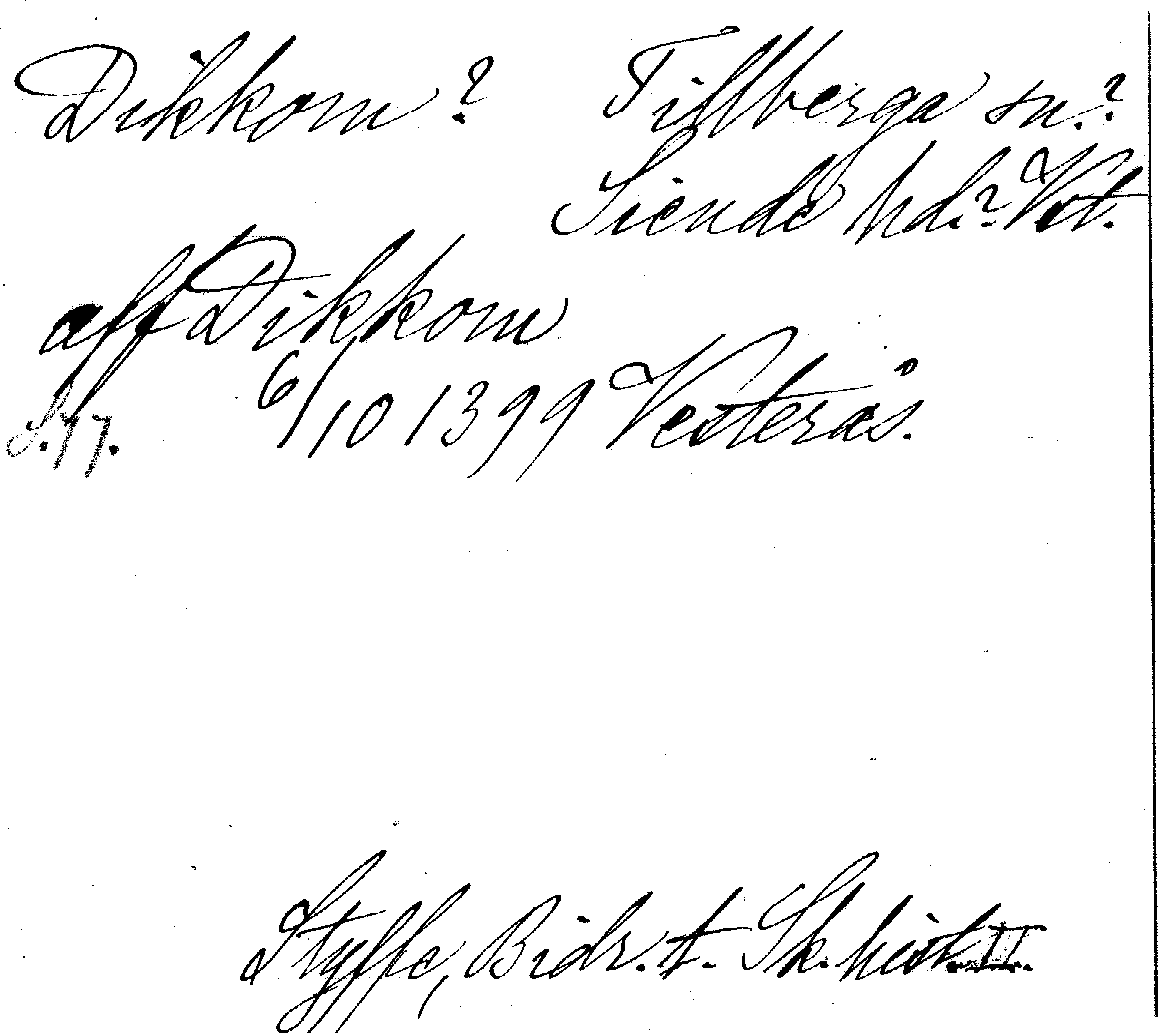 Dikkom? Tillberga sn.?
Siende hd.? Vst.
aff Dikkom
S. 77. 6/10 1399 Vesterås.
Styffe, Bidr. t. Sk. hist. II.